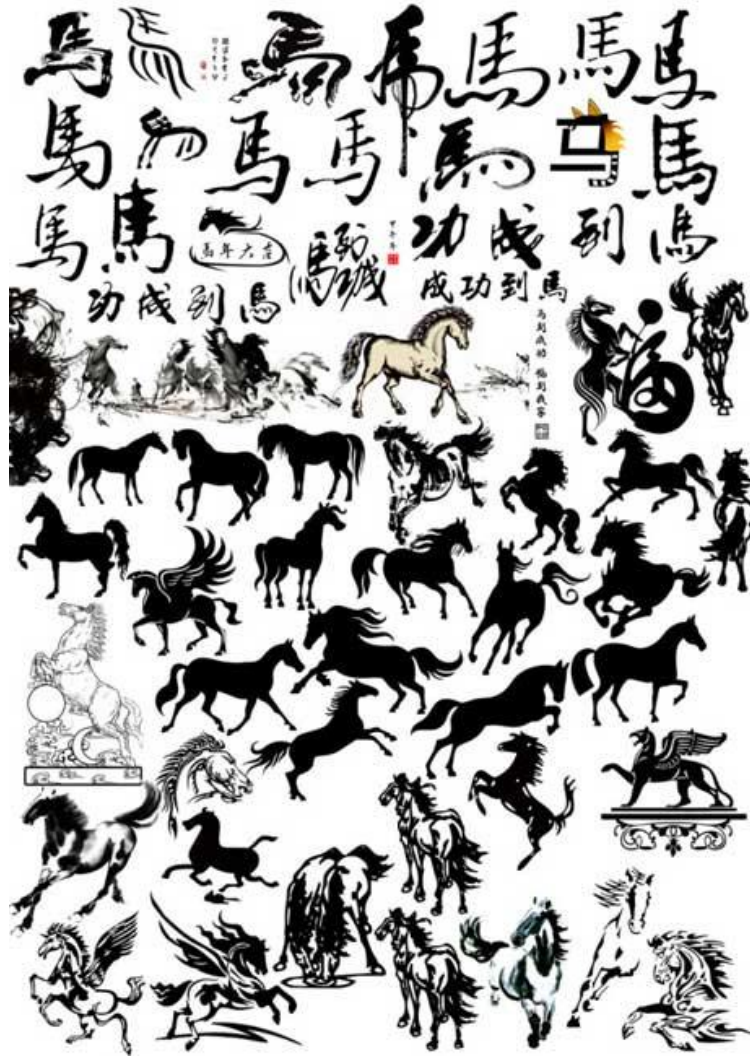 馬 馬 馬 馬 馬 馬
馬 馬 馬 馬 马 馬
馬 馬
馬年大吉
馬到成功
甲午年
功成到馬
功成到馬
成功到馬
马到成功 福到我家
福